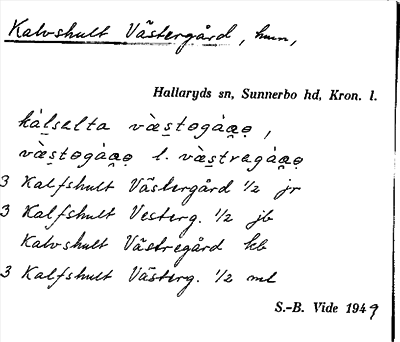 Kalvshult Västergård, hmn,
Hallaryds sn, Sunnerbo hd, Kron. l.
kàlsəlta væ̀stəgàːɹə,
væ̀stəgàːɹə l. væ̀strəgàːɹə
3 Kalfshult Västergård 1/2 jr
3 Kalfshult Vesterg. 1/2 jb
Kalvshult Västregård kb
3 Kalfshult Västerg. 1/2 ml
S.-B. Vide 1949